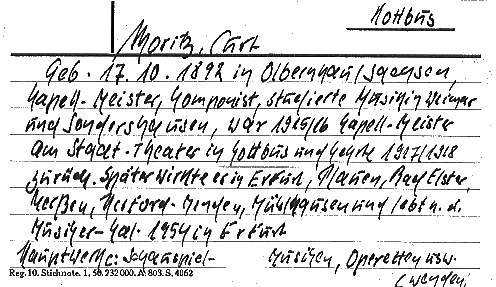 Kottbus
Moritz, Curt
Geb. 17.10.1892 in Olbernhau/Sachsen,
Kapell-Meister, Komponist, studierte Musik in Weimar
und Sondershausen, war 1925/26 Kapell-Meister
am Stadt-Theater in Kottbus und kehrte 1927/1928
zurück. Später wirkte er in Erfurt, Plauen, Bad Elster,
Meißen, Herford-Minden, Mühlhausen und lebt n. d.
Musiker-Kal. 1954 in Erfurt
Hauptwerke: Schauspiel- Musiken, Operetten usw.
Reg. 10. Stichnote. 1, 50. 232 000. A 803. S. 4052
(wenden)